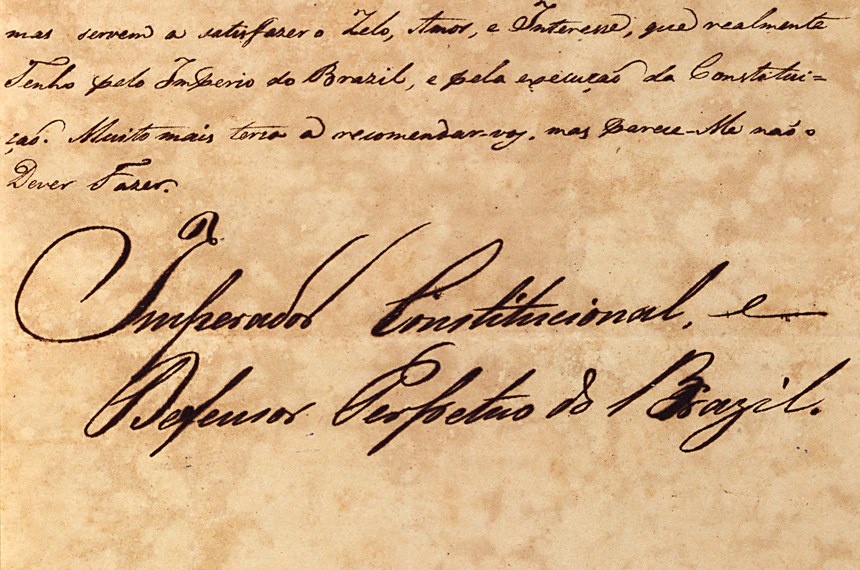 mas servem a satisfazer o Zelo, Amor, e Interesse, que realmente
Tenho pelo Imperio do Brazil, e pela execução da Constitui=
ção. Muito mais teria a recomendar-vos, mas parece-Me não o
Dever Fazer.
Imperador Constitucional, e
Defensor Perpetuo do Brazil.